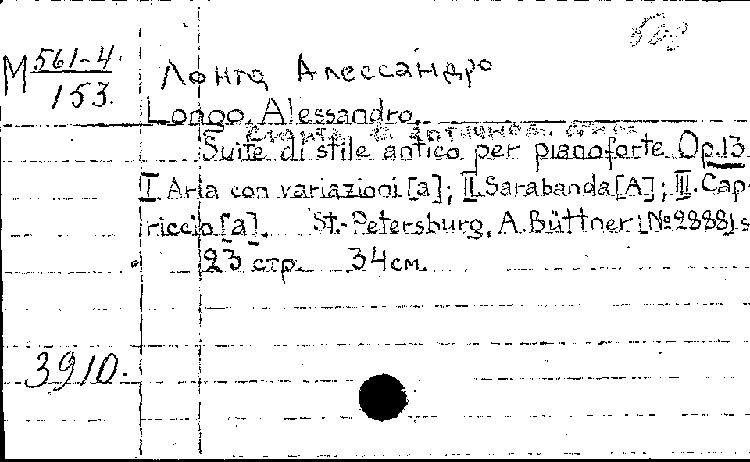 М 561-4
153.
Лонго Алессандро
Longo, Alessandro.
Сюита в античном стиле
Suite di stile antico per pianoforte Op.13
I Aria con variazioni [a]; II. Sarabanda [A]; III. Cap-
riccio [a]. St.-Petersburg, A. Büttner [№ 2888] s
23 стр. 34 см.
3910.